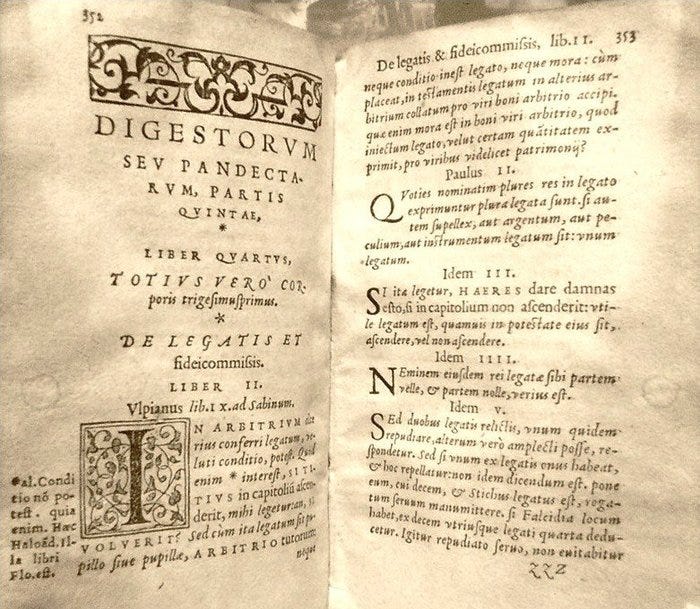 352
DIGESTORVM
SEV PANDECTA-
RVM, PARTIS
QVINTAE,
*
LIBER QVARTVS,
TOTIVS VERO' COR-
poris trigesimusprimus.
*
DE LEGATIS ET
fideicommissis.
LIBER II.
Vlpianus lib. IX. ad Sabinum.
IN ARBITRIVM
rius conferri legatum, ve-
luti conditio, potest. Quid
enim * interest, SI TI-
TIVS in capitoliũ ascen-
derit, mihi legetur: an, si
VOLVERIT? Sed cùm ita legatum sit pu-
pillo siue pupillæ, ARBITRIO tutorum
neque
*al. Condi
tio nõ po-
test. quia
enim. Hæc
Haloãd. Il-
la libri
Flo. est.
De legatis & fideicommissis, lib. II. 353
neque conditio inest legato, neque mora: cùm
placeat, in testamentis legatum in alterius ar-
bitrium collatum pro viri boni arbitrio accipi.
quæ enim mora est in boni viri arbitrio, quod
iniectum legato, velut certam quãtitatem ex-
primit, pro viribus videlicet patrimonij?
Paulus II.
QVoties nominatim plures res in legato
exprimuntur plura legata sunt. si au-
tem supellex, aut argentum, aut pe-
culium, aut instrumentum legatum sit: vnum
legatum.
Idem III.
SI ita legetur, HAERES dare damnas
esto, si in capitolium non ascenderit: vti-
le legatum est, quamuis in potestate eius sit,
ascendere, vel non ascendere.
Idem IIII.
NEminem eiusdem rei legatæ sibi partem
velle, & partem nolle, verius est.
Idem V.
SEd duobus legatis relictis, vnum quidem
repudiare, alterum verò amplecti posse, re-
spondetur. Sed si vnum ex legatis onus habeat,
& hoc repellatur: non idem dicendum est. pone
eum, cui decem, & Stichus legatus est, roga-
tum seruum manumittere. si Falcidia locum
habet, ex decem vtriusque legati quarta dedu-
cetur. Igitur repudiato seruo, non euitabitur
ZZZ